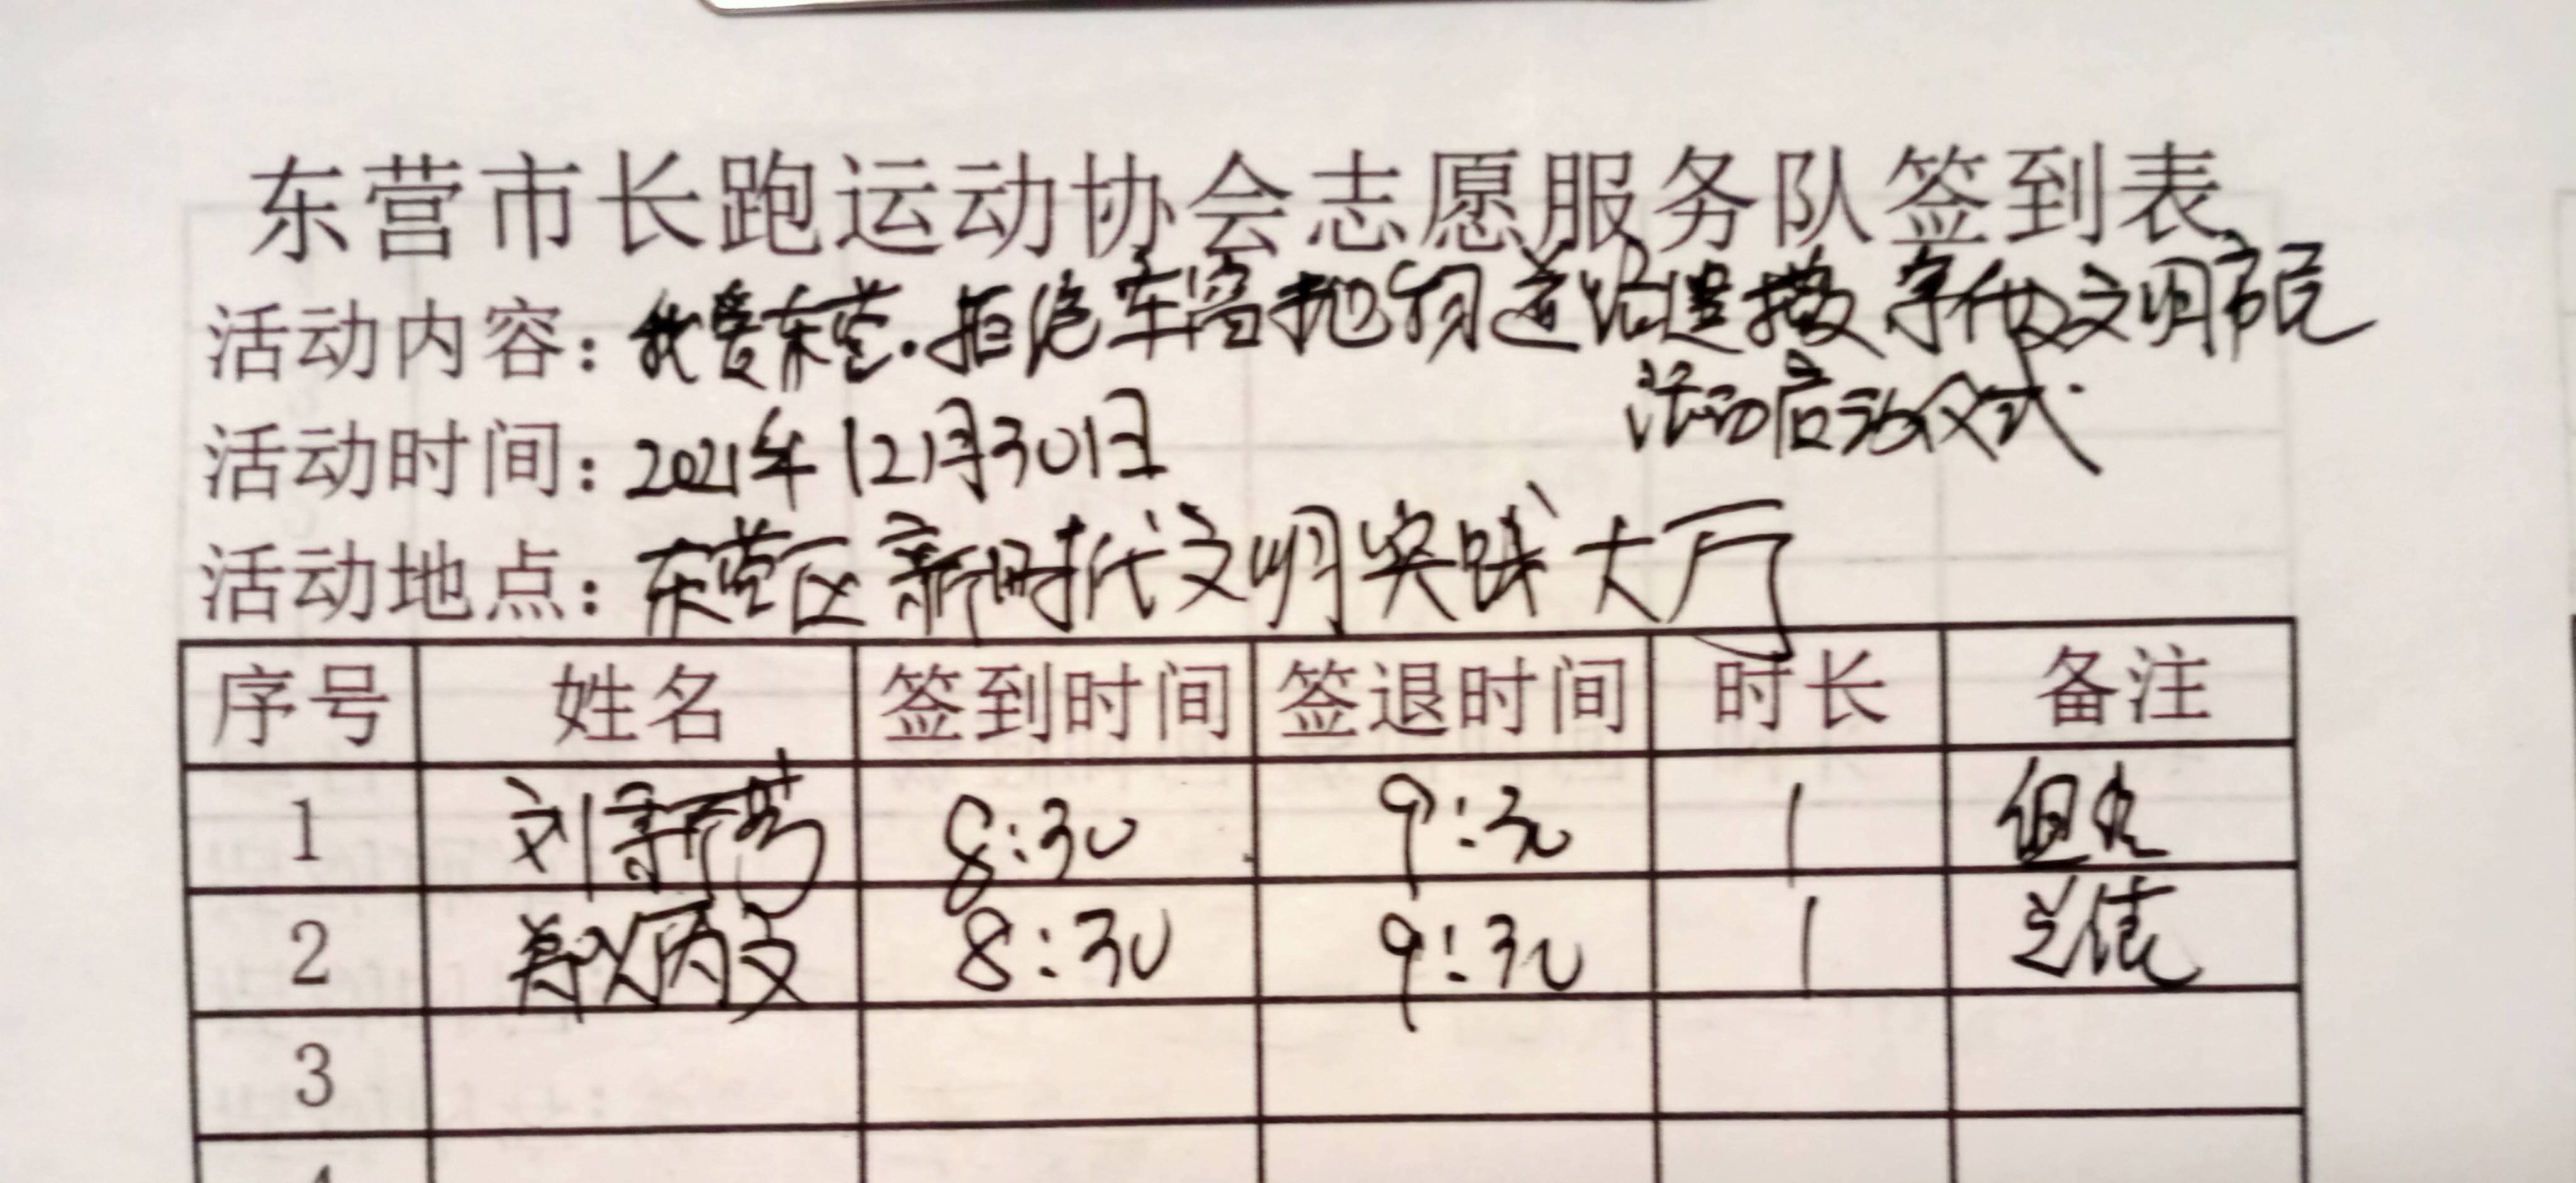 东营市长跑运动协会志愿服务队签到表
活动内容：我爱东营．拒绝车窗抛物道路遗撒 争做文明市民
活动启动仪式
活动时间：2021年12月30日
活动地点：东营区新时代文明实践大厅
序号 姓名 签到时间 签退时间 时长 备注
1 刘 芳 8:30 9:30 1
2 郑炳文 8:30 9:30 1
3
4